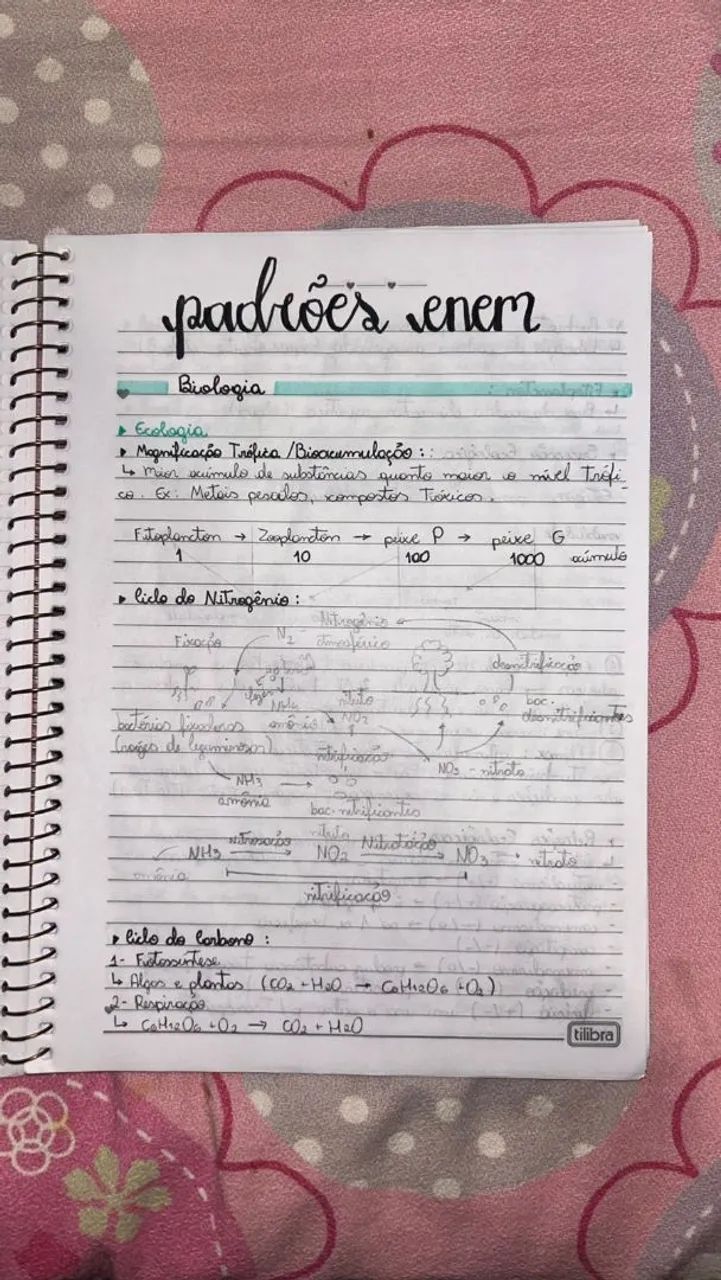 padrões enem
Biologia
▸ Ecologia
▸ Magnificação Trófica /Bioacumulação :
↳ Maior acúmulo de substâncias quanto maior o nível Trófi-
co. Ex: Metais pesados, compostos Tóxicos.
Fitoplancton → Zooplancton → peixe P → peixe G
1 10 100 1000 acúmulo
▸ Ciclo do Nitrogênio :
Nitrogênio
Fixação N2 atmosférico
desnitrificação
NH4 nitrito bac.
bactérias fixadoras amônio NO2 desnitrificantes
(raízes de leguminosas) nitrificação
NO3 - nitrato
NH3 →
amônia bac. nitrificantes
Nitrosação nitrito Nitratação
NH3 → NO2 → NO3 → nitrato
amônia
nitrificação
▸ Ciclo do Carbono :
1- Fotossíntese
↳ Algas e plantas (CO2 + H2O → C6H12O6 + O2)
2- Respiração
↳ C6H12O6 + O2 → CO2 + H2O
tilibra